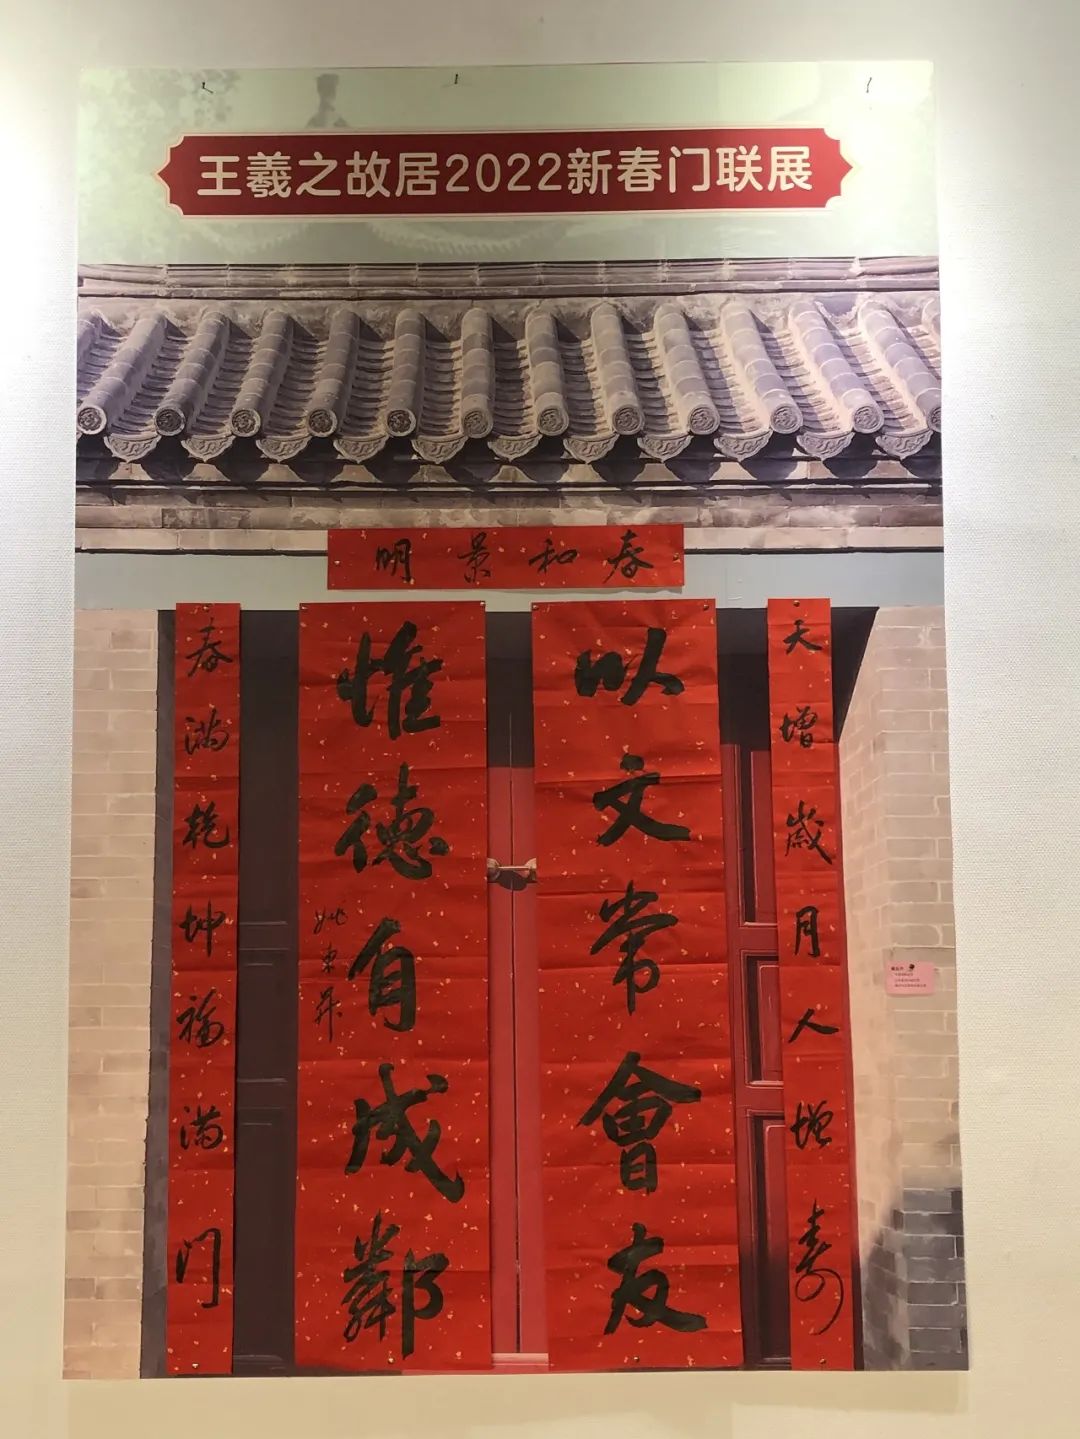 王羲之故居2022新春门联展
春和景明
天增歲月人增壽
以文常會友
惟德自成鄰
姚東昇
春满乾坤福满门